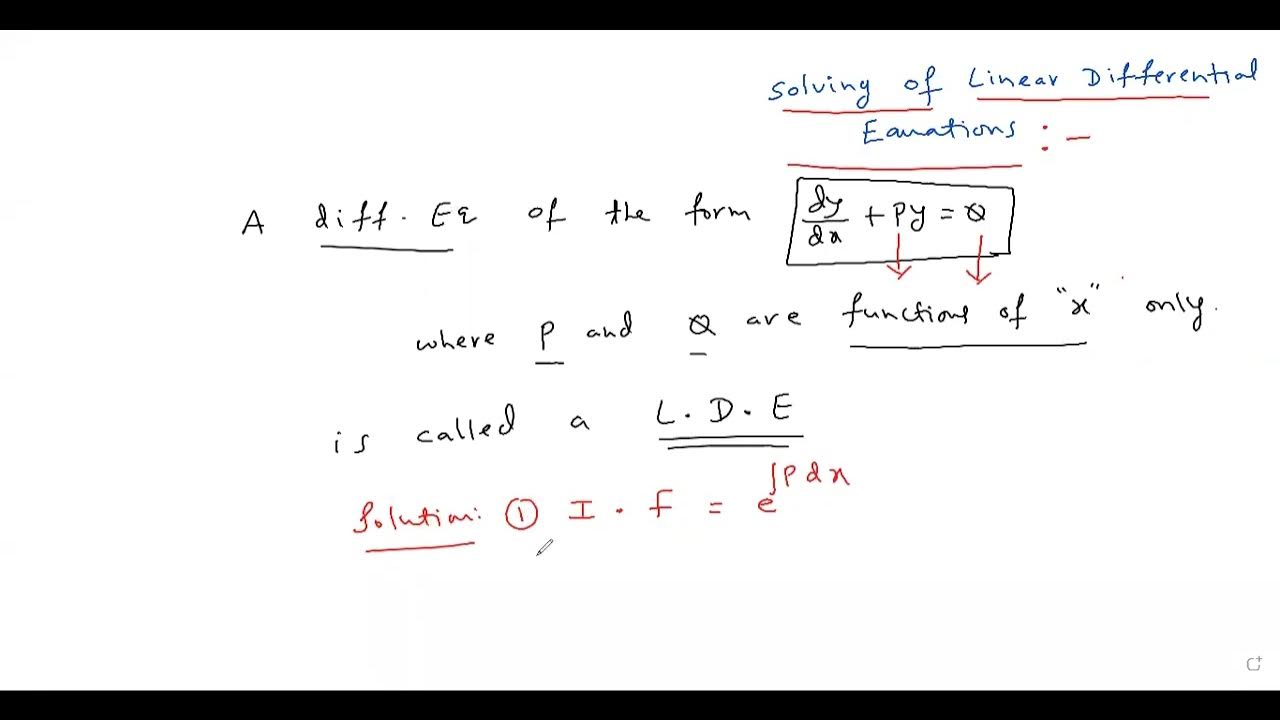 Solving of Linear Differential
Equations : -
A diff. Eq of the form dy/dx + Py = Q
where P and Q are functions of "x" only.
is called a L.D.E
Solution: ① I.f = e^∫Pdx